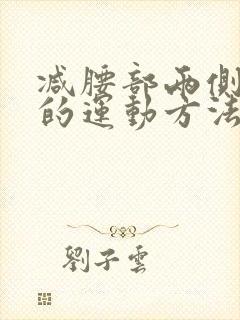 减腰部兩側
的運動方法
劉子雲